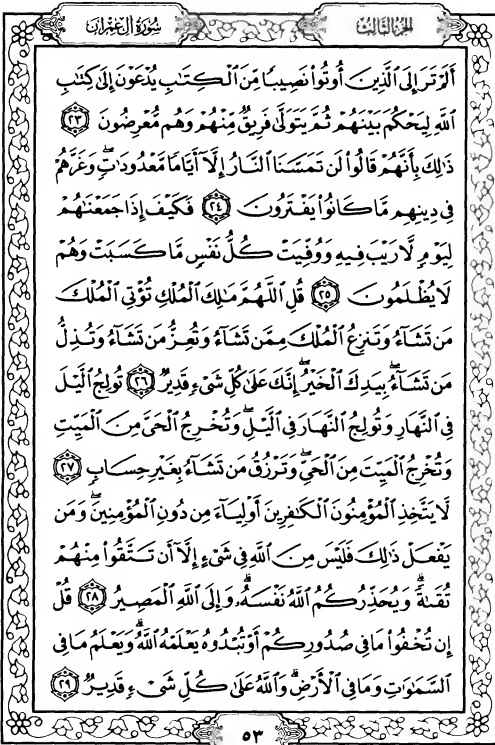 سُورَةُ آلِ عِمْرَانَ
الجُزءُ الثَّالِثُ
أَلَمْ تَرَ إِلَى ٱلَّذِينَ أُوتُوا۟ نَصِيبًا مِّنَ ٱلْكِتَٰبِ يُدْعَوْنَ إِلَىٰ كِتَٰبِ
ٱللَّهِ لِيَحْكُمَ بَيْنَهُمْ ثُمَّ يَتَوَلَّىٰ فَرِيقٌ مِّنْهُمْ وَهُم مُّعْرِضُونَ ٢٣
ذَٰلِكَ بِأَنَّهُمْ قَالُوا۟ لَن تَمَسَّنَا ٱلنَّارُ إِلَّآ أَيَّامًا مَّعْدُودَٰتٍ ۖ وَغَرَّهُمْ
فِى دِينِهِم مَّا كَانُوا۟ يَفْتَرُونَ ٢٤ فَكَيْفَ إِذَا جَمَعْنَٰهُمْ
لِيَوْمٍ لَّا رَيْبَ فِيهِ وَوُفِّيَتْ كُلُّ نَفْسٍ مَّا كَسَبَتْ وَهُمْ
لَا يُظْلَمُونَ ٢٥ قُلِ ٱللَّهُمَّ مَٰلِكَ ٱلْمُلْكِ تُؤْتِى ٱلْمُلْكَ
مَن تَشَآءُ وَتَنزِعُ ٱلْمُلْكَ مِمَّن تَشَآءُ وَتُعِزُّ مَن تَشَآءُ وَتُذِلُّ
مَن تَشَآءُ ۖ بِيَدِكَ ٱلْخَيْرُ ۖ إِنَّكَ عَلَىٰ كُلِّ شَىْءٍ قَدِيرٌ ٢٦ تُولِجُ ٱلَّيْلَ
فِى ٱلنَّهَارِ وَتُولِجُ ٱلنَّهَارَ فِى ٱلَّيْلِ ۖ وَتُخْرِجُ ٱلْحَىَّ مِنَ ٱلْمَيِّتِ
وَتُخْرِجُ ٱلْمَيِّتَ مِنَ ٱلْحَىِّ ۖ وَتَرْزُقُ مَن تَشَآءُ بِغَيْرِ حِسَابٍ ٢٧
لَّا يَتَّخِذِ ٱلْمُؤْمِنُونَ ٱلْكَٰفِرِينَ أَوْلِيَآءَ مِن دُونِ ٱلْمُؤْمِنِينَ ۖ وَمَن
يَفْعَلْ ذَٰلِكَ فَلَيْسَ مِنَ ٱللَّهِ فِى شَىْءٍ إِلَّآ أَن تَتَّقُوا۟ مِنْهُمْ
تُقَىٰةً ۗ وَيُحَذِّرُكُمُ ٱللَّهُ نَفْسَهُۥ ۗ وَإِلَى ٱللَّهِ ٱلْمَصِيرُ ٢٨ قُلْ
إِن تُخْفُوا۟ مَا فِى صُدُورِكُمْ أَوْ تُبْدُوهُ يَعْلَمْهُ ٱللَّهُ ۗ وَيَعْلَمُ مَا فِى
ٱلسَّمَٰوَٰتِ وَمَا فِى ٱلْأَرْضِ ۗ وَٱللَّهُ عَلَىٰ كُلِّ شَىْءٍ قَدِيرٌ ٢٩
٥٣